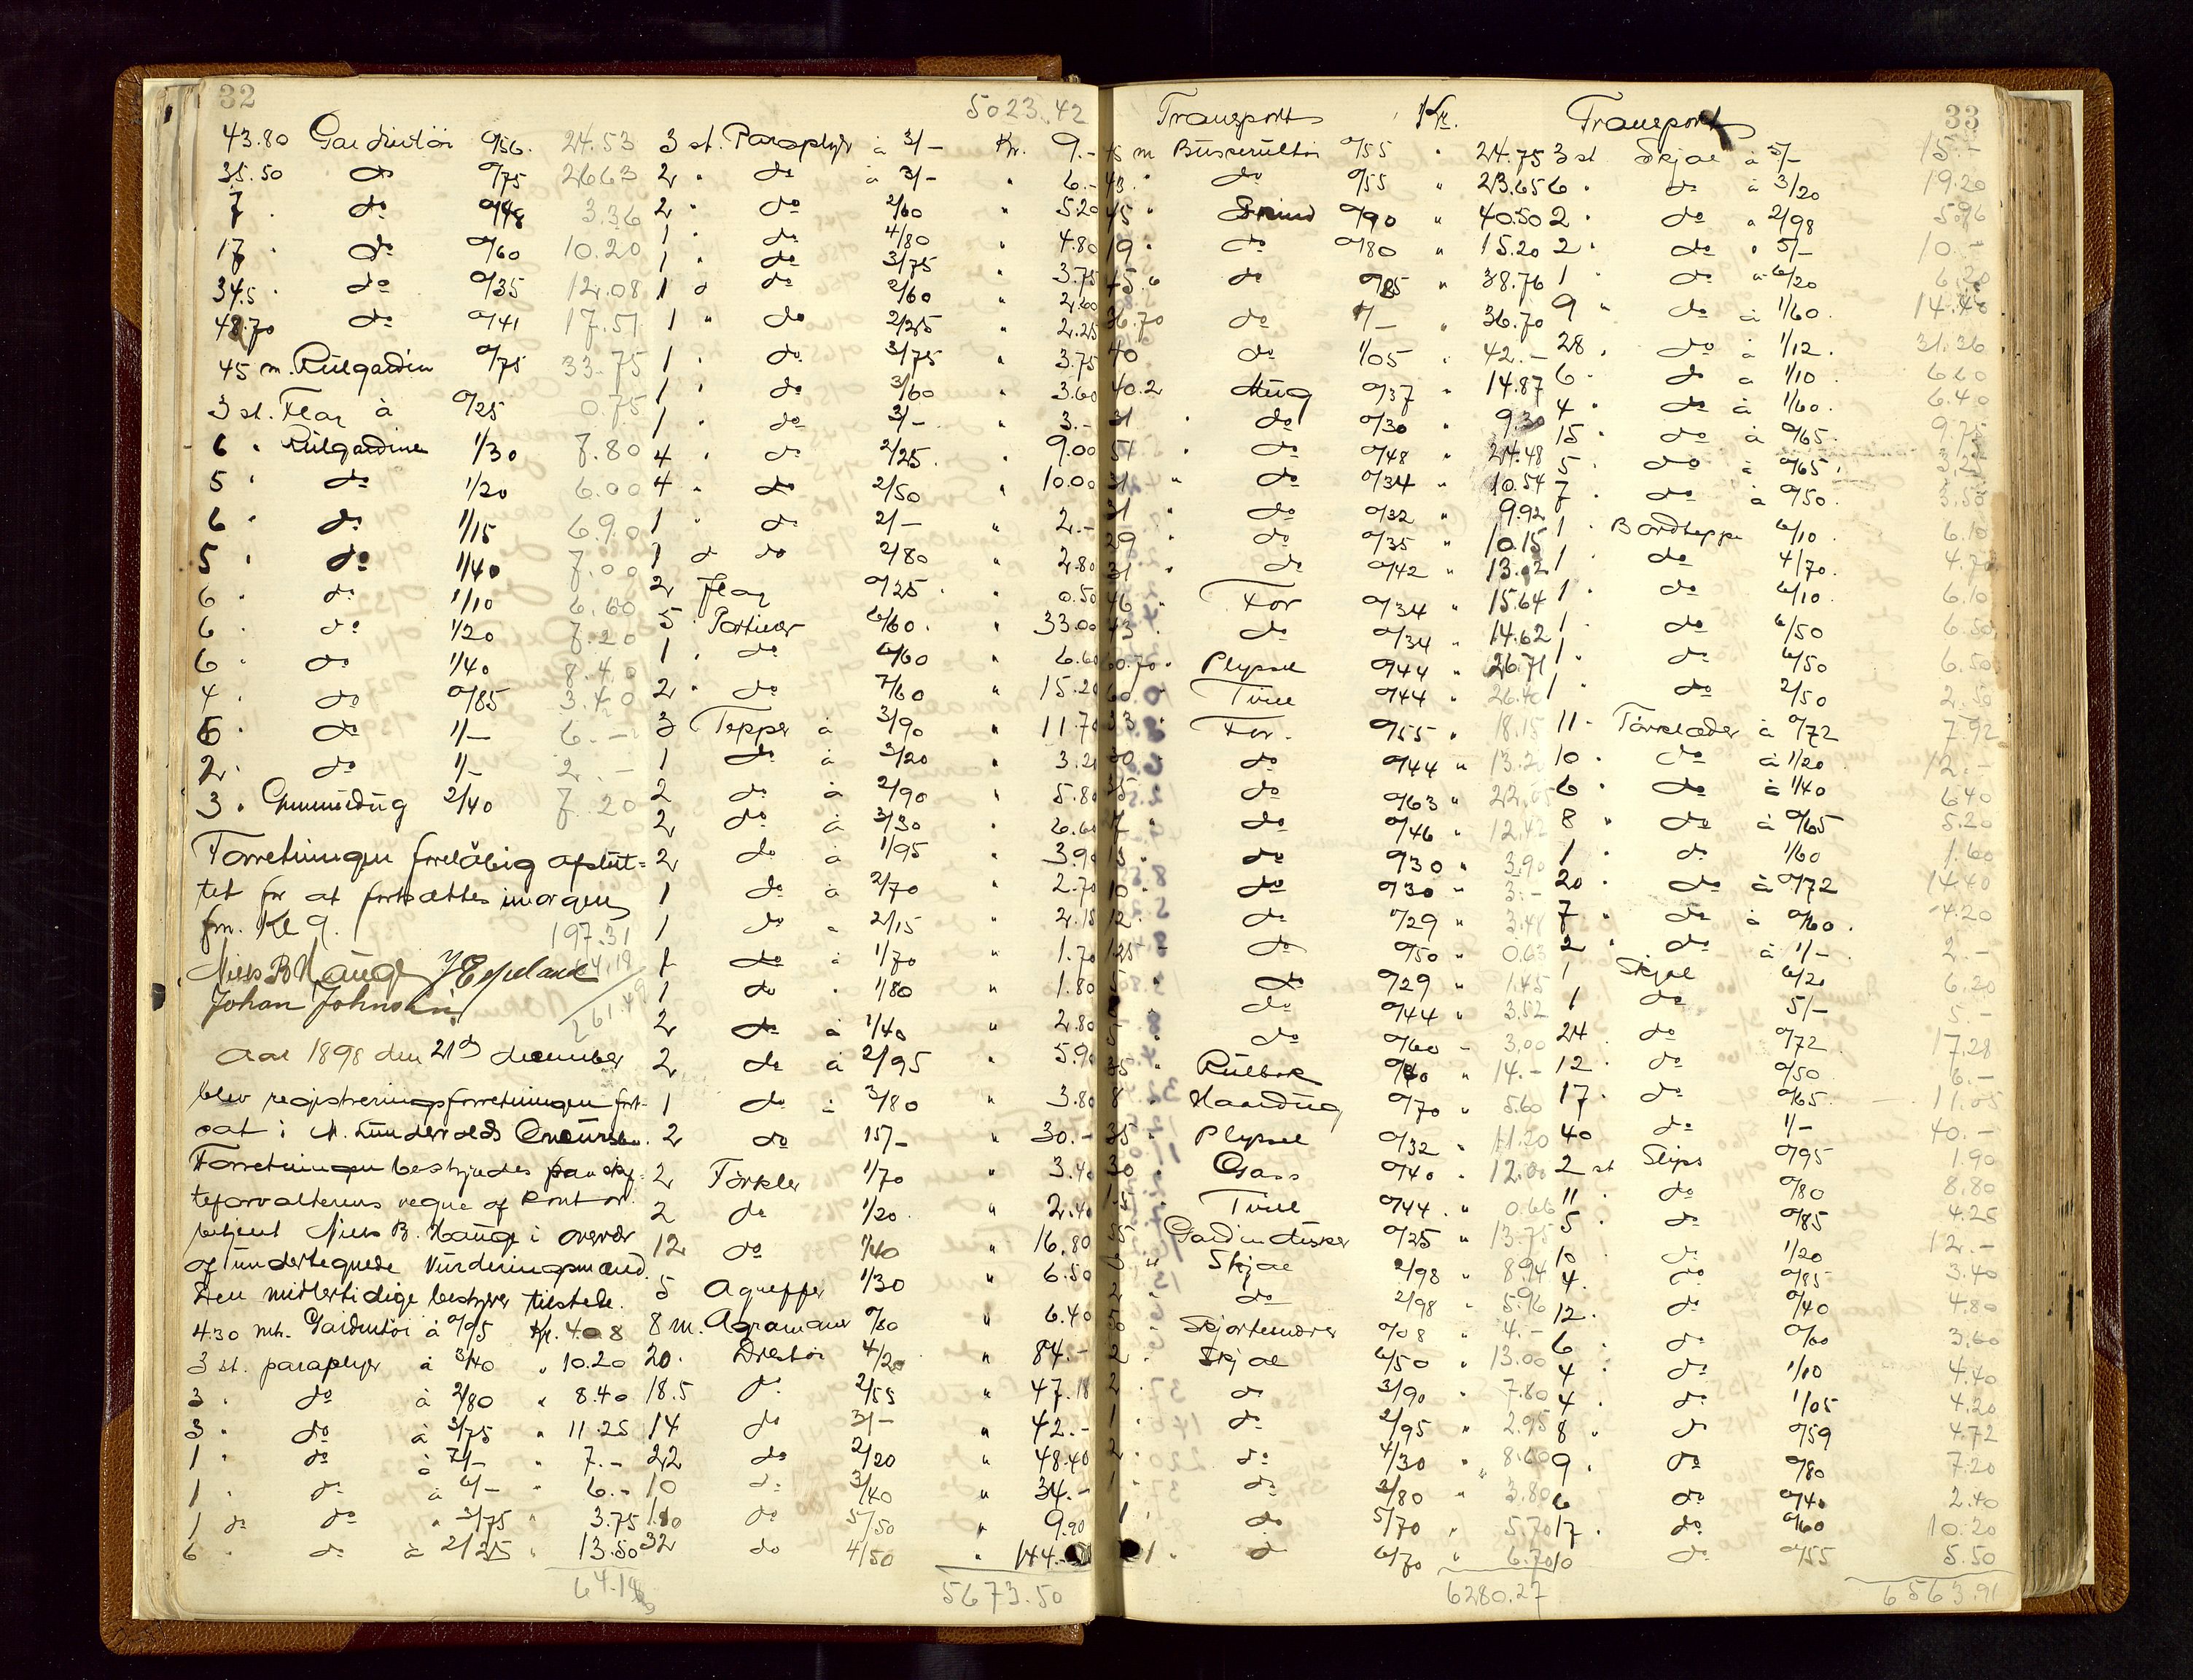 32
43.80 Gardintöi 0/56. 24.53
35.50 do 0/75 26.63
7 . do 0/48 3.36
17 . do 0/60 10.20
34.5 . do 0/35 12.08
42.70 do 0/41 17.51
45 m. Rülgardin 0/75 33.75
3 st. Flag à 0/25 0.75
6 . Rülgardiner 1/30 7.80
5 . do 1/20 6.00
6 . do 1/15 6.90
5 . do 1/40 7.00
6 . do 1/10 6.60
6 . do 1/20 7.20
6 . do 1/40 8.40
4 . do 0/85 3.40
6 . do 1/- 6.-
2 . do 1/- 2.-
3 . Gummidug 2/40 7.20
Forretningen foreløbig afslüt=
tet for at fortsættes imorgen
fm. Kl 9. 197.31
Niels B Hauge J Espeland 64.18
Johan Johnsen 261.49
Aar 1898 den 21de december
blev registreringsforretningen fort-
sat i M. Lündevolds Concursbo.
Forretningen bestyrdes paa skif-
teforvalterens vegne af kontor-
betjent Niels B. Hauge i overvær
af undertegnede Vurderingsmænd.
Den midlertidige bestyrer tilstede.
4.30 mtr. Gardintöi à 0/95 Kr. 4.08
3 st. paraplyer à 3/40 " 10.20
3 . do à 2/80 " 8.40
3 . do à 3/75 " 11.25
1 . do à 7/- " 7.-
1 . do à 6/- " 6.-
1 do do " 3/75 " 3.75
6 . do à 2/25 " 13.50
64.18
5023.42
3 st. Paraplyr à 3/- Kr. 9.-
2 " do à 3/- " 6.-
2 " do 2/60 " 5.20
1 " do 4/80 " 4.80
1 " do 3/75 " 3.75
1 d do 2/60 " 2.60
1 " do 2/25 " 2.25
1 . do 3/75 " 3.75
1 . do 3/60 " 3.60
1 . do 3/- . 3.-
4 . do 2/25 . 9.00
4 . do 2/50 " 10.00
1 " do 2/- " 2.-
1 d do 2/80 " 2.80
2 Flag 0/25 . 0.50
5 . Portierer 6/60 . " 33.00
1 . do 6/60 " 6.60
2 . do 7/60 " 15.20
3 Tepper à 3/90 " 11.70
1 do à 3/20 " 3.20
2 do à 2/90 " 5.80
2 do à 3/30 " 6.60
2 do à 1/95 " 3.90
1 do à 2/70 " 2.70
1 do " 2/15 " 2.15
1 do à 1/70 " 1.70
1 do . 1/80 " 1.80
2 do à 1/40 " 2.80
2 do à 2/95 . 5.90
1 do à 3/80 " 3.80
2 do 15/- " 30.-
2 Törkler 1/70 " 3.40
2 do 1/20 " 2.40
12 do 1/40 " 16.80
5 Agreffer 1/30 " 6.50
8 m. Agramaner 0/80 " 6.40
20 . Drestöi 4/20 " 84.-
18.5 do 2/55 " 47.18
14 do 3/- " 42.-
22 do 2/20 " 48.40
10 do 3/40 " 34.-
1.80 do 5/50 " 9.90
32 do 4/50 " 144.-
5673.50
Transport Kr.
45 m Büsserültöi 0/55 " 24.75
43 . do 0/55 " 23.65
45 " 0/90 " 40.50
19 " do 0/80 " 15.20
45.6 do 0/85 " 38.76
36.70 do 1/- " 36.70
40 do 1/05 " 42.-
40.2 0/37 " 14.87
31 . do 0/30 " 9.30
51 . do 0/48 " 24.48
31 " do 0/34 " 10.54
31 " do 0/32 " 9.92
29 " do 0/35 " 10.15
31 " do 0/42 " 13.02
46 " For 0/34 " 15.64
43 . do 0/34 " 14.62
60.70 " Plysell 0/44 " 26.71
60 " Tvill 0/44 " 26.40
33 " For. 0/55 " 18.15
30 do 0/44 " 13.2
35 do 0/63 " 22.05
do 0/46 " 12.42
do 0/30 " 3.90
10 " do 0/30 " 3.-
12 . do 0/29 " 3.48
1.25 do 0/50 " 0.63
5 . do 0/29 " 1.45
8 do 0/44 " 3.52
5 . do 0/60 - 3.00
35 " Rülbok 0/40 " 14.-
8 . Haanddug 0/70 " 5.60
35 " Plysell 0/32 " 11.20
30 . Gass 0/40 . 12.00
1.5 . Tvill 0/44 . " 0.66
55 Gardindüsker 0/25 " 13.75
3 " Skjal 2/98 " 8.94
2 " do 2/98 " 5.96
50 " 0/08 " 4.-
2 . Skjal 6/50 " 13.00
2 . do 3/90 " 7.80
1 . do 2/95 " 2.95
2 . do 4/30 " 8.60
1 do 3/80 " 3.80
1 . do 5/70 " 5.70
1 . do 6/70 " 6.70
6280.27
Transport 33
3 st Skjal à 5/- 15.-
6 . do à 3/20 19.20
2 . do " 2/98 5.96
2 . do . 5/- 10.-
1 . do " 6/20 6.20
9 " do à 1/60 . 14.40
28 . do à 1/12 . 31.36
6 . do a 1/10 6.60
4 . do à 1/60 . 6.40
15 . do à 0/65 . 9.75
5 . do à 0/65 . 3.25
7 . do à 0/50 . 3.50
1 . Bordteppe 6/10 . 6.10
1 . do 4/70 . 4.70
1 . do 6/10 . 6.10
1 . do 6/50 6.50
1 . do 6/50 6.50
1 . do 2/50 2.50
11 - Törklæder à 0/72 7.92
10 . do à 1/20 12.-
6 . do à 1/40 6.40
8 " do à 0/65 5.20
1 . do 1/60 1.60
20 . do à 0/72 14.40
7 " do à 0/60 . 4.20
2 . do à 1/- 2.-
1 Skjal 6/20 6.20
1 do 5/- 5.-
24 do 0/72 17.28
12 . do 0/50 6.-
17 . do 0/65 . 11.05
40 do 1/- 40.-
2 st Slips 0/95 1.90
11 . do 0/80 8.80
5 . do 0/85 4.25
10 . do 1/20 12.-
4 . do 0/85 3.40
12 . do 0/40 4.80
6 . do 0/60 3.60
4 . do 1/10 4.40
4 . do 1/05 4.20
8 " do 0/59 4.72
9 . do 0/80 7.20
6 do 0/40 2.40
17 . do 0/60 10.20
10 do 0/55 5.50
6563.91